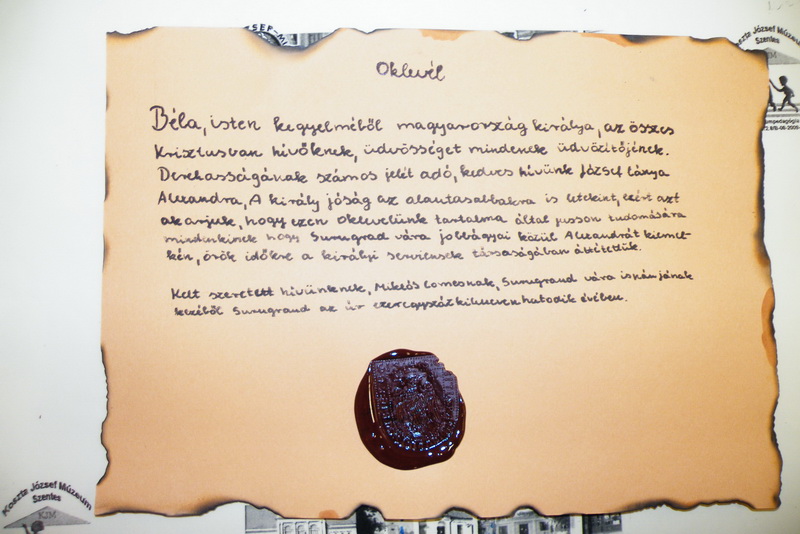 Oklevél
Béla, isten kegyelméből magyarország királya, az összes
Krisztusban hívőknek, üdvösséget mindenek üdvözítőjének.
Derekasságának számos jelét adó, kedves hívünk József lánya
Alexandra, A király jóság az alantasabbakra is letekint, ezért azt
akarjuk, hogy ezen oklevelünk tartalma által jusson tudomására
mindenkinek hogy Surugrad vára jobbágyai közül Alexandrát kiemel-
kén, örök időkre a királyi serviensek társaságában áttétetjük.
Kelt szeretett hívünknek, Miklós comesnak, Surugraud vára ispánjának
kezéből Surugraud az úr ezeregyszázkilencvenhatodik évében.
Koszta József Múzeum
Szentes
KJM
Koszta József Múzeum
Szentes
KJM